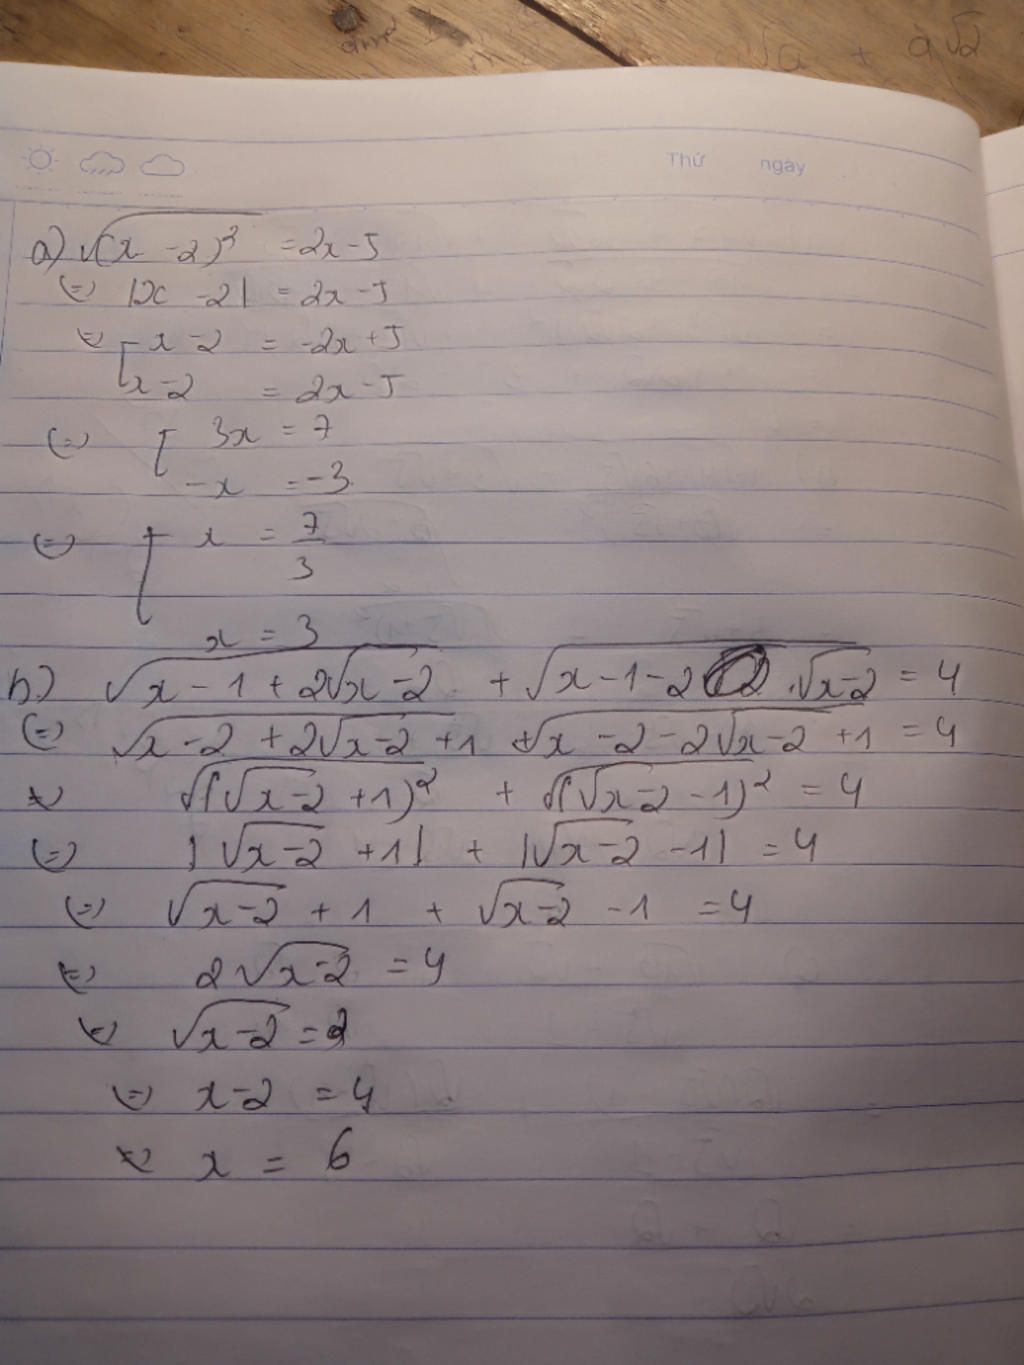 a√2
√a +
Thứ ngày
a) √(x - 2)² = 2x - 5
(=) |x - 2| = 2x - 5
(=) [ x - 2 = -2x + 5
[ x - 2 = 2x - 5
(=) [ 3x = 7
-x = -3
(=) [ x = 7/3
x = 3
b) √x - 1 + 2√x - 2 + √x - 1 - 2 . √x - 2 = 4
(=) √x - 2 + 2√x - 2 + 1 + √x - 2 - 2√x - 2 + 1 = 4
(=) √(√x - 2 + 1)² + √(√x - 2 - 1)² = 4
(=) |√x - 2 + 1| + |√x - 2 - 1| = 4
(=) √x - 2 + 1 + √x - 2 - 1 = 4
(=) 2√x - 2 = 4
(=) √x - 2 = 2
(=) x - 2 = 4
(=) x = 6